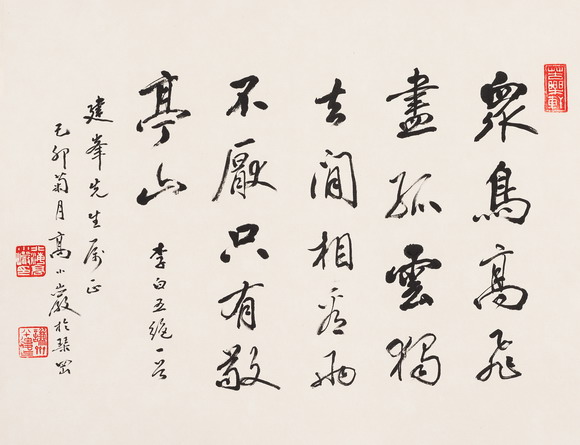 衆鳥高飛
盡孤雲獨
去閒相看兩
不厭只有敬
亭山 李白五絕一首
建峯先生属正
己卯菊月高小巖於